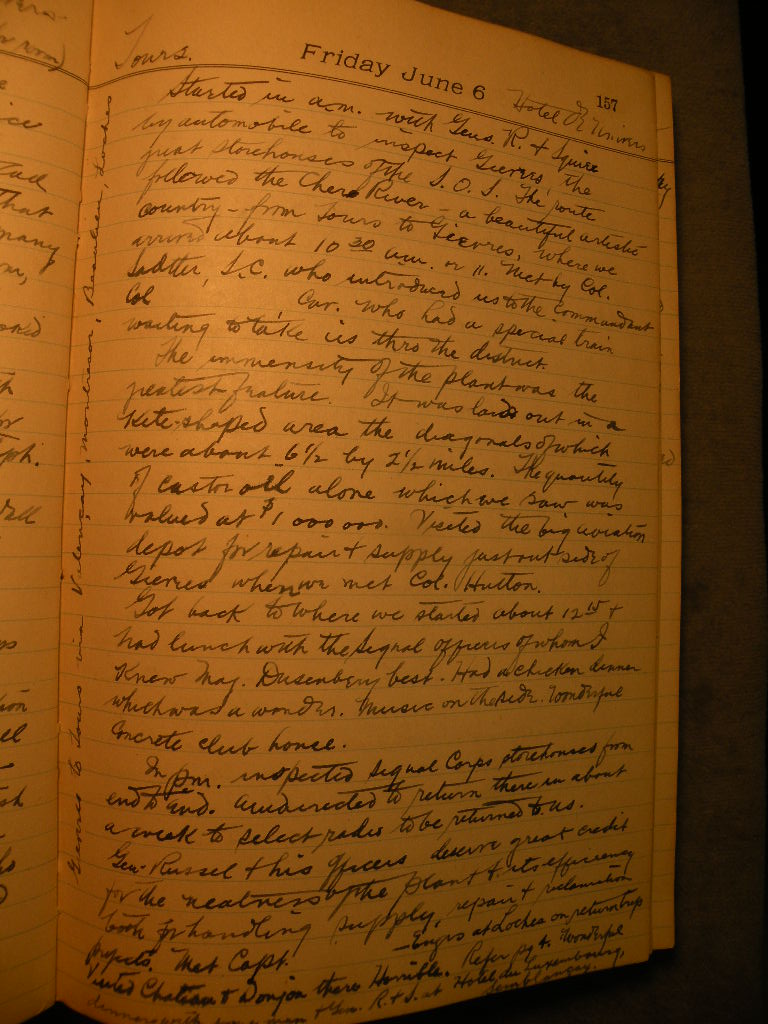 Tours.
Friday June 6
157
Hotel de Univers
Started in a.m. with Gens. R. & Squier
by automobile to inspect Gievres, the
great storehouses of the S.O.S. The route
followed the Cher River - a beautiful artistic
country - from Tours to Gievres, where we
arrived about 10 30 a.m. or 11. Met by Col.
S.C. who introduced us to the Commandant
Col Cav. who had a special train
waiting to take us thro the district.
The immensity of the plant was the
greatest feature. It was laid out in a
Kite-shaped area the diagonals of which
were about 6 1/2 by 2 1/2 miles. The quantity
of castor oil alone which we saw was
valued at $1 000 000. Visited the big aviation
depot for repair & supply just outside of
Gievres when we met Col. Hutton.
Got back to where we started about 12 15 &
had lunch with the Signal officers of whom I
Knew Maj. Dusenbery best. Had a chicken dinner
which was a wonder. Music on the side. Wonderful
Concrete club house.
In p.m. inspected Signal Corps storehouses from
end to end. Am directed to return there in about
a week to select radio to be returned to US.
Gen. Russel & his officers deserve great credit
for the neatness of the plant & its efficiency
both for handling supply, repair & reclamation
projects. Met Capt. Engrs at Loches on return trip
Visited Chateau & Donjon there Horrible. Refer pg Wonderful
dinner with & Gen. R. & S. at Hotel du Luxembourg,
Semblancay.
Gievres to Tours via Valençay, Montresor, Beaulieu, Loches